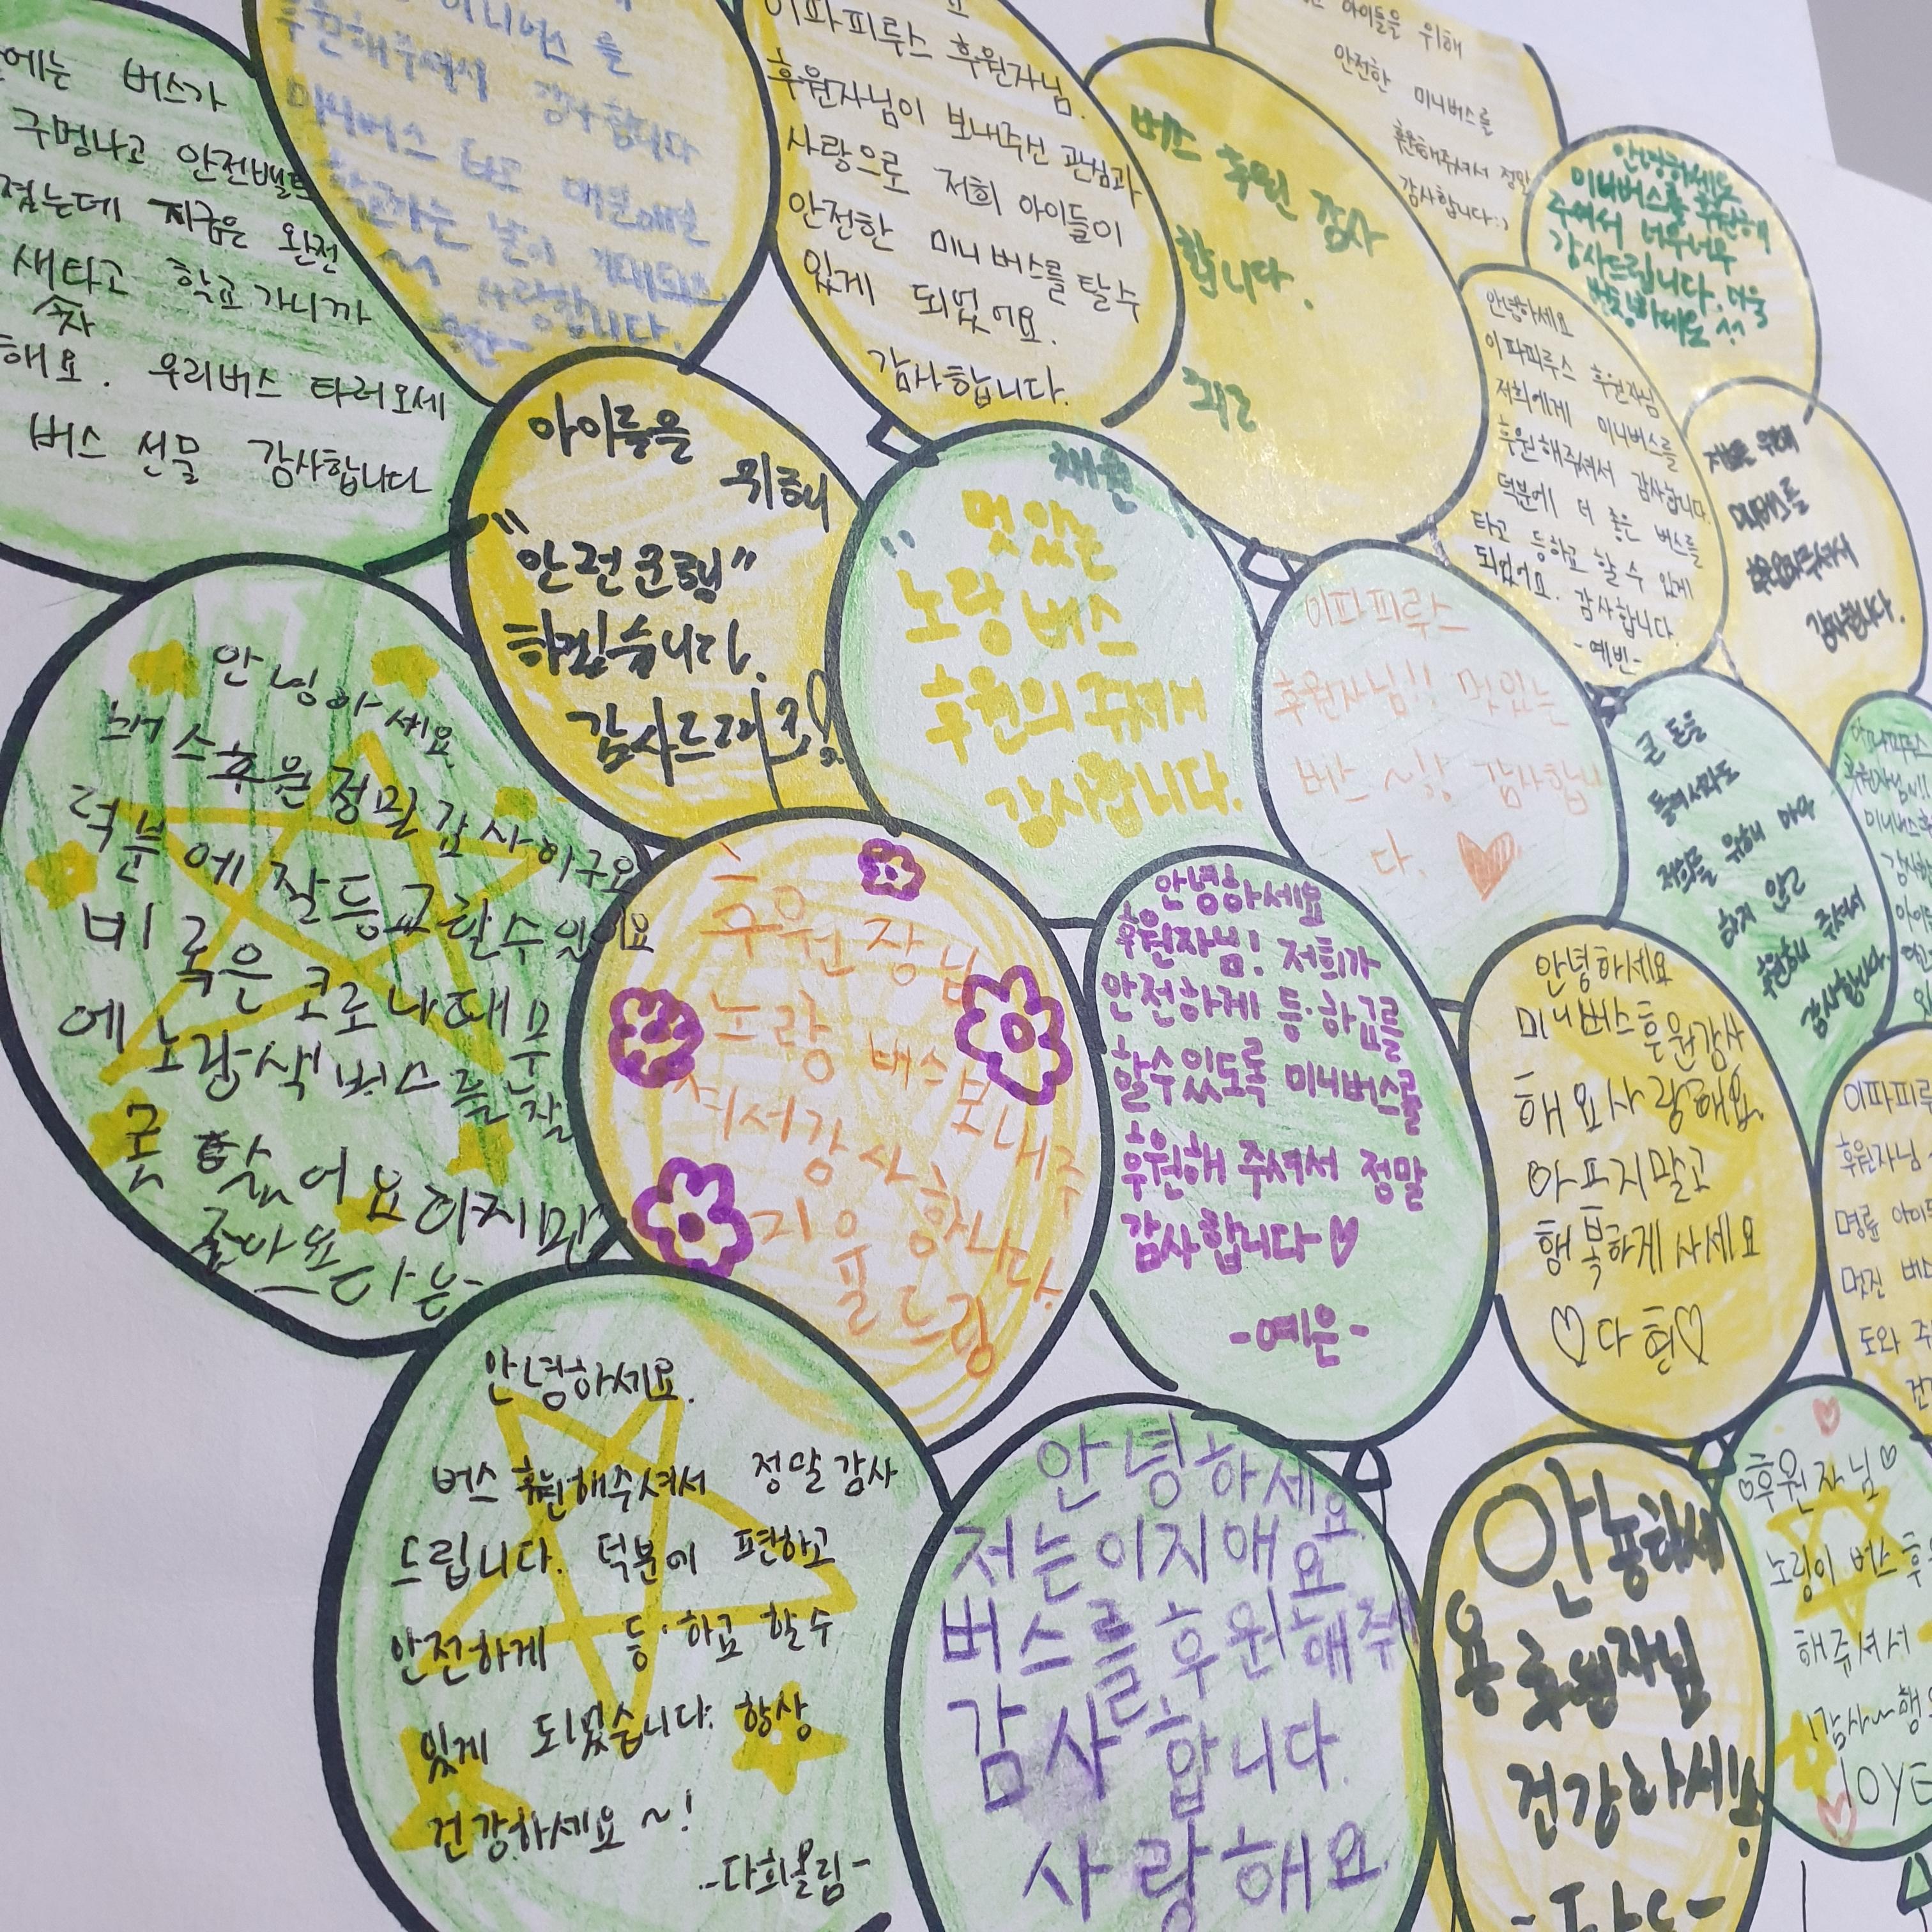 에는 버스가
구멍나고 안전벨트
졌는데 지금은 완전
새차타고 학교가니까
해요. 우리버스 타러오세
버스 선물 감사합니다
미니버스 를
후원해주셔서 감사합니다
미니버스 타고 매일매일
학교가는 날이
~ 사랑합니다.
이파피루스 후원자님.
후원자님이 보내주신 관심과
사랑으로 저희 아이들이
안전한 미니버스를 탈수
있게 되었어요.
감사합니다.
버스 후원 감사
합니다.
아이들을 위해
안전한 미니버스를
후원해주셔서 정말
감사합니다:)
안녕하세요
미니버스를 후원해
주셔서 너무너무
감사드립니다.
아이들을
위해
"안전운행"
하겠습니다.
감사드려요!
채원
"멋있는
노랑버스
후원의 주셔서
감사합니다.
안녕하세요
이파피루스 후원자님
저희에게 미니버스를
후원해주셔서 감사합니다.
덕분에 더 좋은 버스를
타고 등하교 할 수 있게
되었어요. 감사합니다
-예빈-
저희를 위해
후원해주셔서
감사합니다.
이파피루스
후원자님!! 멋있는
버스 ~!! 감사합니
다. ♥
큰 돈을
들여서라도
저희를 위해 아까
하지 않고
후원해 주셔서
감사합니다.
이파피루스
후원자님!!
안녕하세요
버스후원정말감사하구요
덕분에잘등교할수있어요
비록은 코로나때무
에노랑색버스를잘
못탔어요하지만
좋아요 다은-
후원장님
노랑 버스보내주
셔서감사합니다.
지유 올드림
안녕하세요
후원자님! 저희가
안전하게 등·하교를
할수있도록 미니버스를
후원해 주셔서 정말
감사합니다♡
-예은-
안녕하세요
미니버스후원감사
해요사랑해요.
아프지말고
행복하게 사세요
♡다현♡
이파피루
후원자님
명륜 아이
멋진 버
도와 주
안녕하세요.
버스 후원해주셔서 정말감사
드립니다. 덕분에 편하고
안전하게 등·하교 할수
있게 되었습니다. 항상
건강하세요~!
-다희올림-
안녕하세요
저는이지애요
버스를후원해주
감사합니다.
사랑해요.
안뇽하세
용 후원자님
건강하세용!
♡후원자님♡
노랑이 버스 후
해쥬셔서
감사~행
loyE